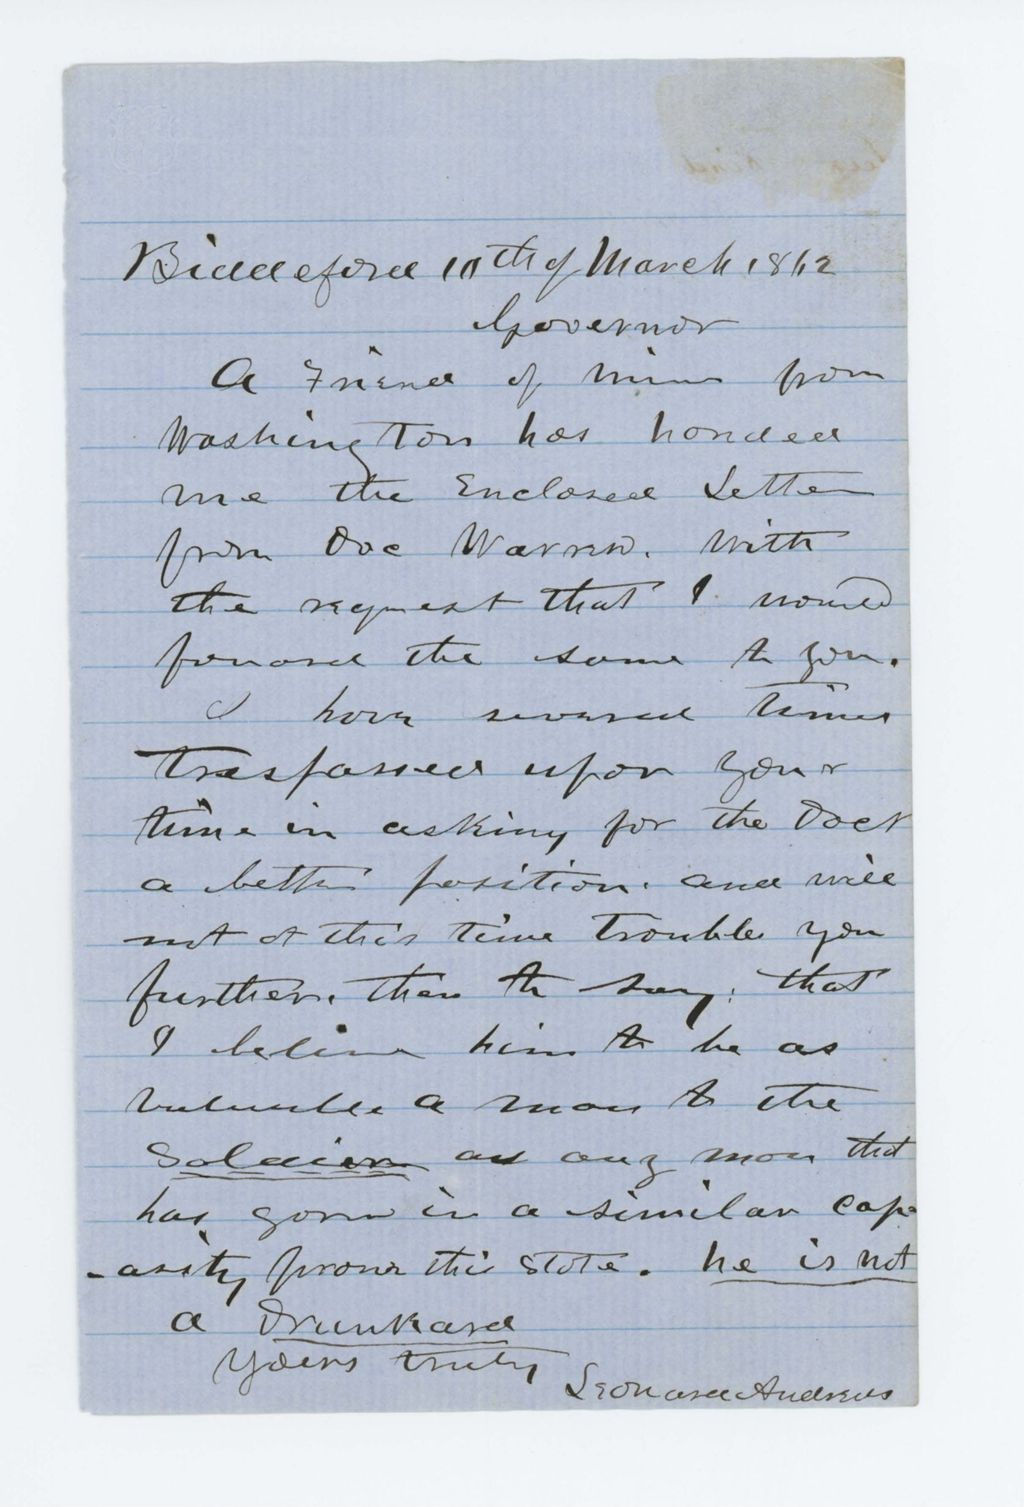 Biddeford 10th of March 1862
Governor
A Friend of mine from
Washington has handed
me the Enclosed Letter
from Doc Warren. with
the request that I would
forward the same to you.
I have several times
trespassed upon your
time in asking for the Doct
a better position. and will
not at this time trouble you
further. than to say. that
I believe him to be as
valuable a man to the
Soldiers as any man that
has gone in a similar cap
-asity from this State. he is not
a Drunkard
Yours truly
Leonard Andrews